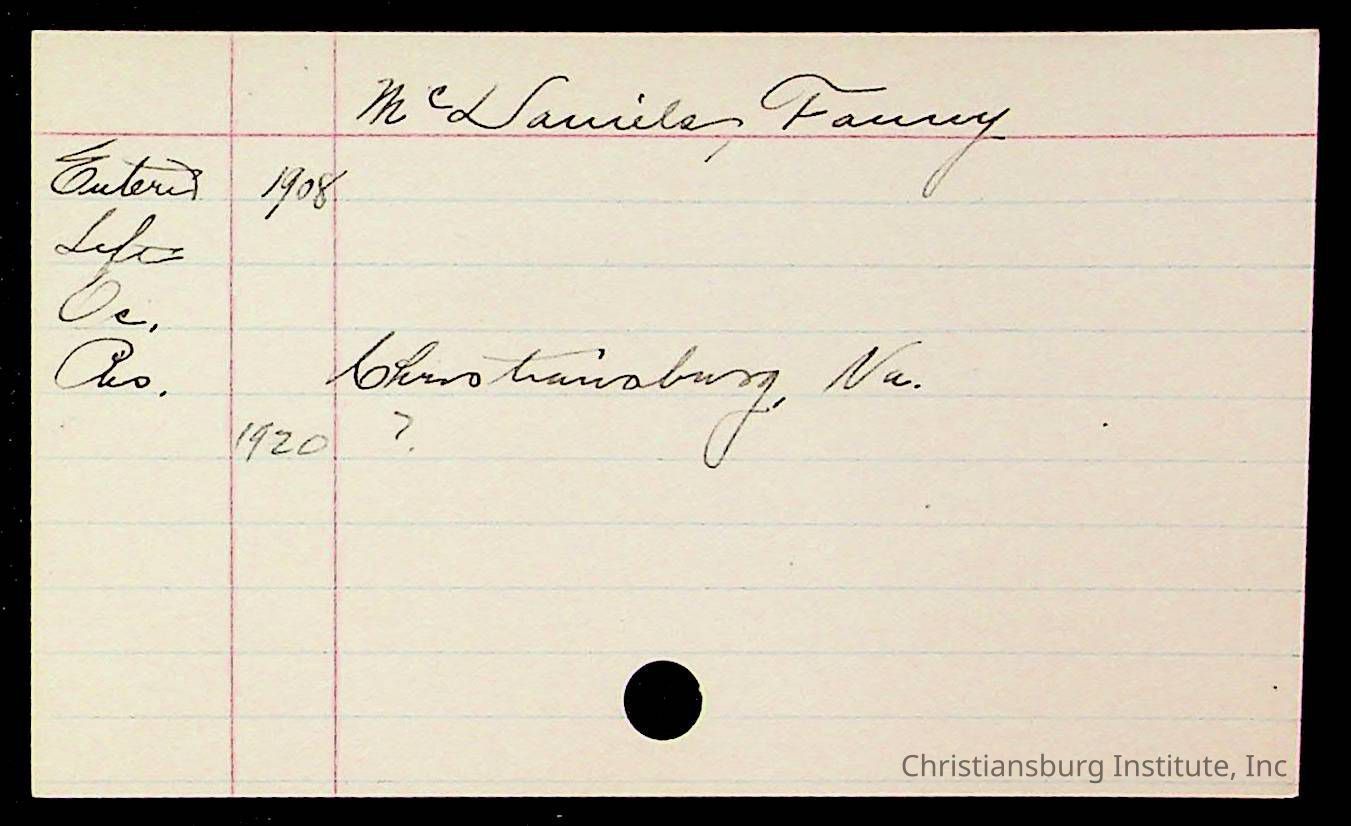 McDaniels, Fanny
Entered 1908
Left
Oc.
Res. Christiansburg, Va.
1920 ?
Christiansburg Institute, Inc